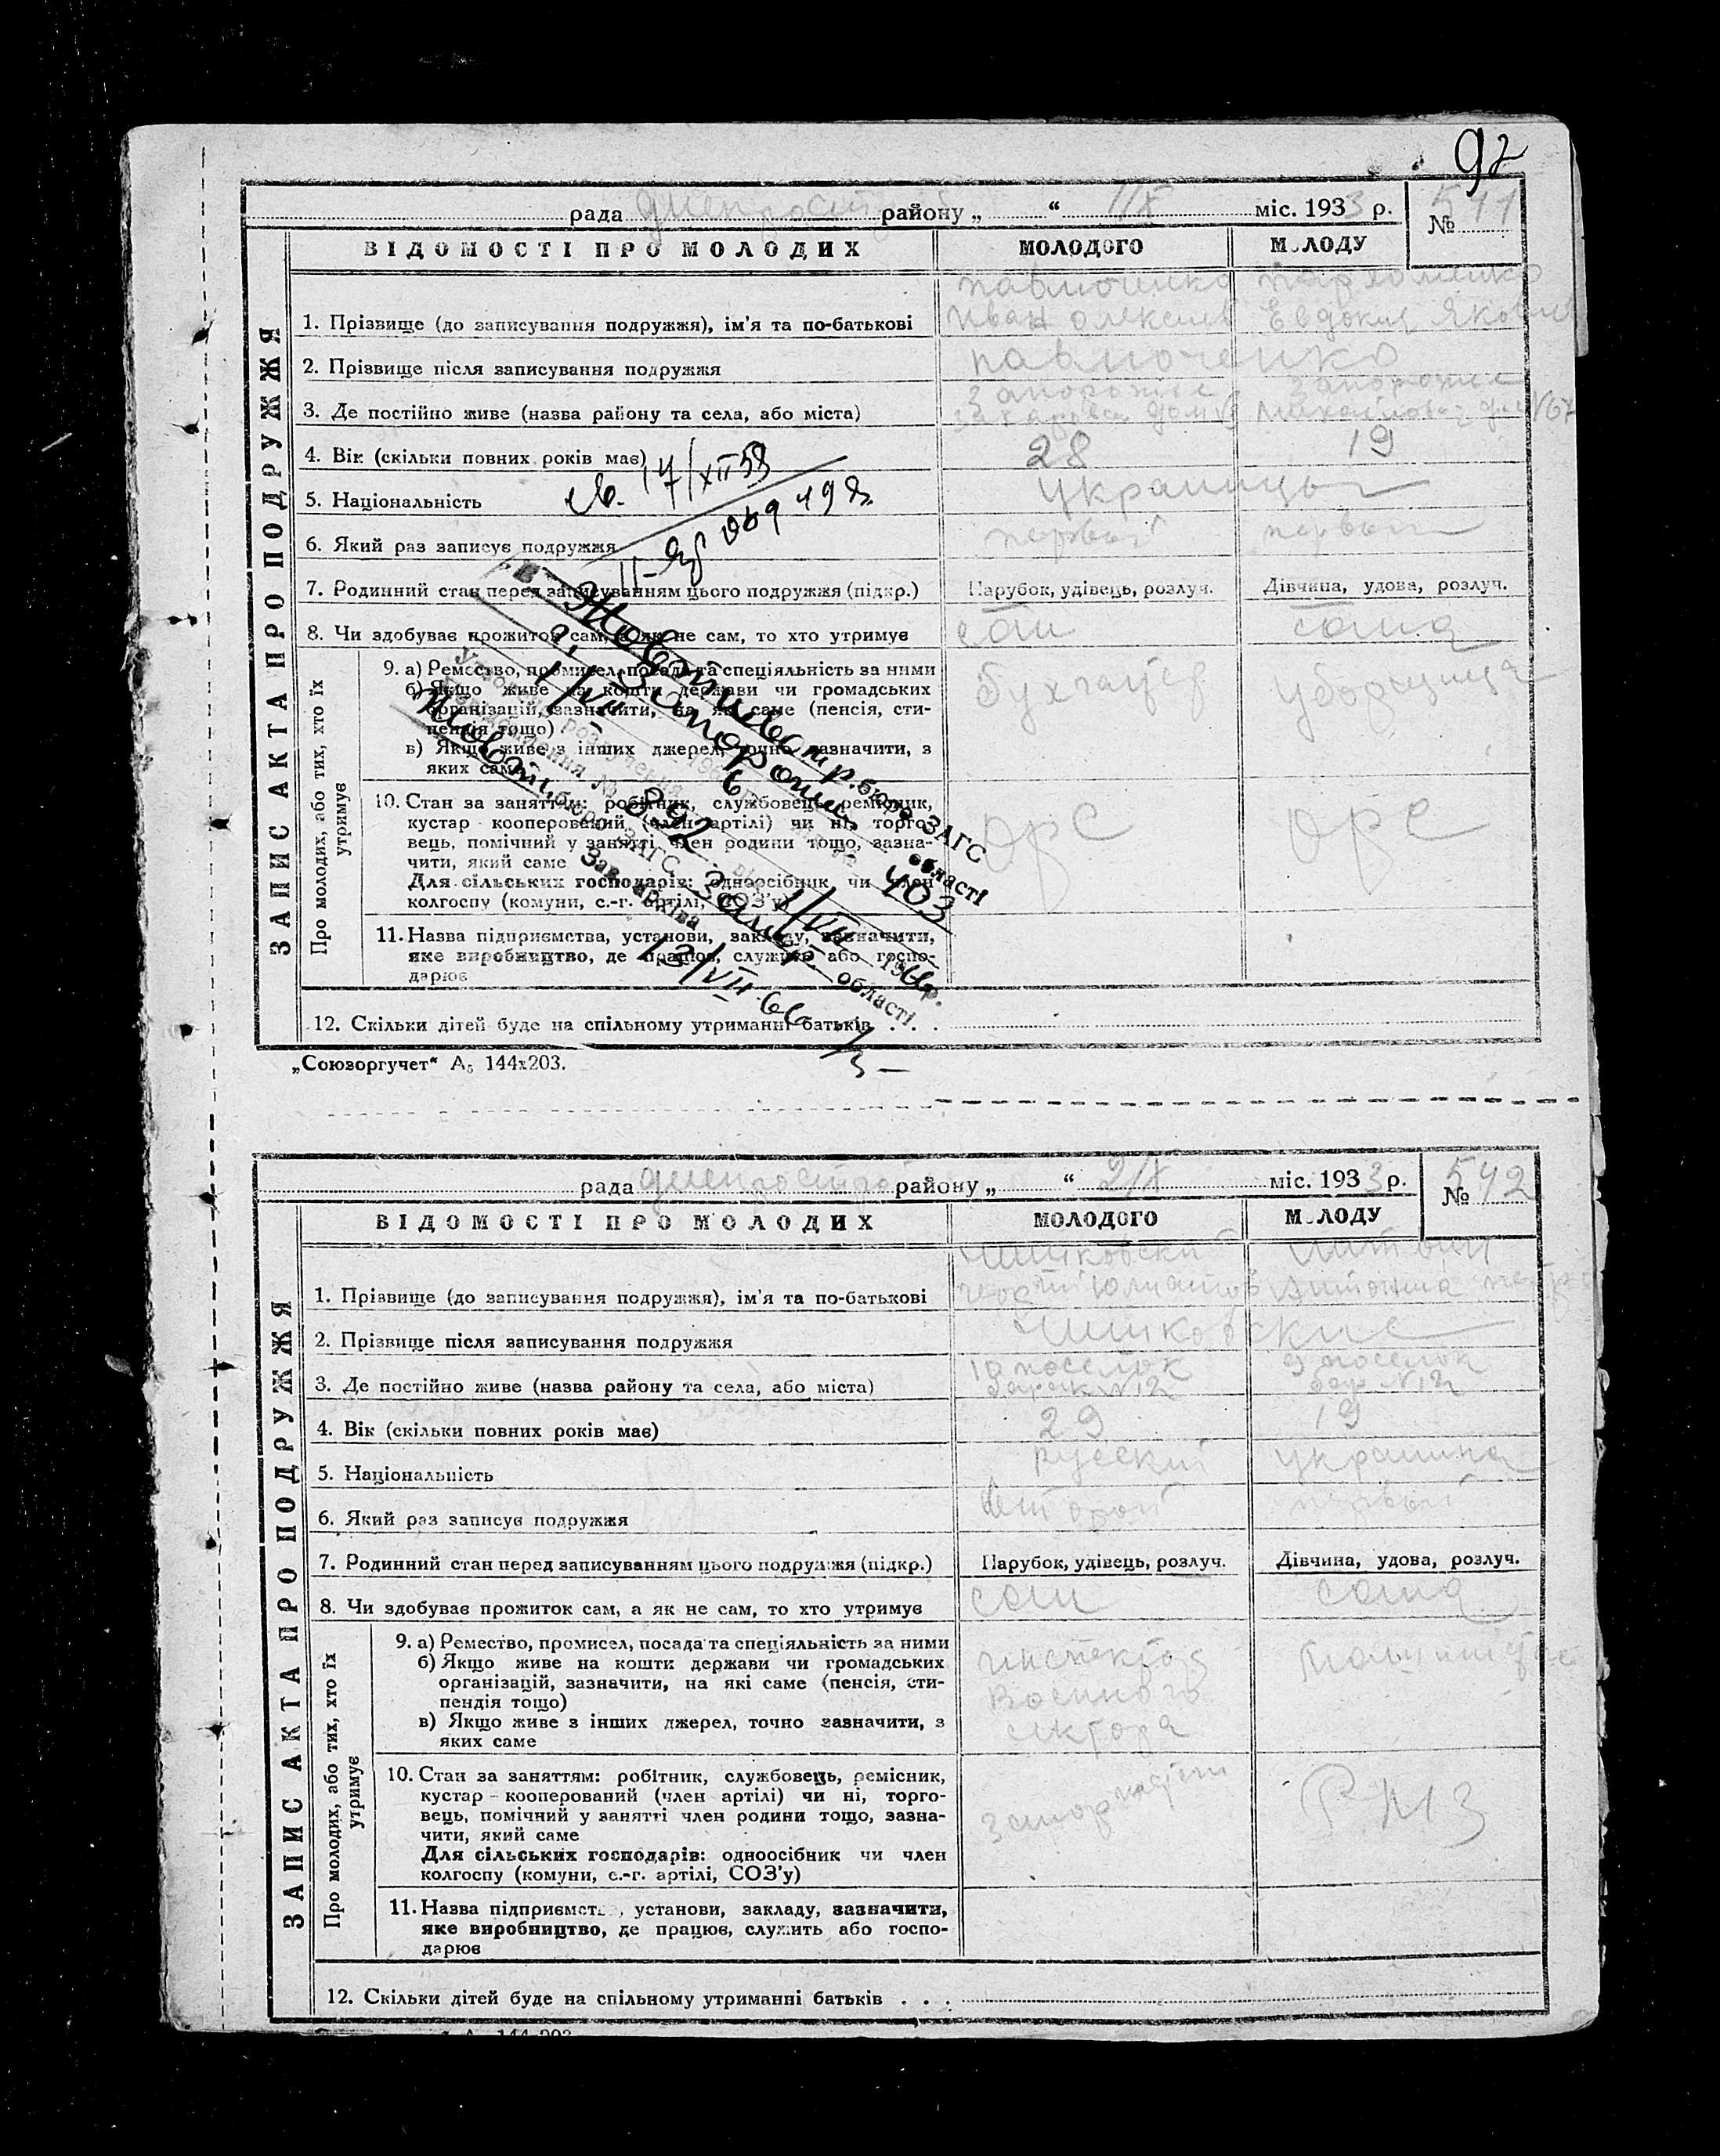 92
рада днепрострой району „ “ 1/X міс. 1933 р. № 541
ВІДОМОСТІ ПРО МОЛОДИХ МОЛОДОГО МОЛОДУ
ЗАПИС АКТА ПРО ПОДРУЖЖЯ
павлюченко пархоменко
1. Прізвище (до записування подружжя), ім’я та по-батькові Иван Алексеев Евдокия Яковл
2. Прізвище після записування подружжя павлюченко
Запорожье Запорожье
3. Де постійно живе (назва району та села, або міста)
4. Вік (скільки повних років має) 28 19
5. Національність украинцы
6. Який раз записує подружжя первый первый
7. Родинний стан перед записуванням цього подружжя (підкр.) Парубок, удівець, розлуч. Дівчина, удова, розлуч.
8. Чи здобуває прожиток сам, а як не сам, то хто утримує сам сама
Про молодих, або тих, хто їх утримує
9. а) Ремество, промисел, посада та спеціяльність за ними бухгалтер уборщица
б) Якщо живе на кошти держави чи громадських
організацій, зазначити, на які саме (пенсія, сти-
пендія тощо)
в) Якщо живе з інших джерел, точно зазначити, з
яких саме
10. Стан за заняттям: робітник, службовець, ремісник,
кустар - кооперований (член артілі) чи ні, торго- орс орс
вець, помічний у занятті член родини тощо, зазна-
чити, який саме
Для сільських господарів: одноосібник чи член
колгоспу (комуни, с.-г. артілі, СОЗ’у)
11. Назва підприємства, установи, закладу, зазначити,
яке виробництво, де працює, служить або госпо-
дарює
12. Скільки дітей буде на спільному утриманні батьків . . .
17/XII 58
бюро ЗАГС
області
403
892
бюро ЗАГС області
Зав. архіва
13/VII 66
„Союзоргучет“ А5 144х203.
рада днепрострой району „ “ 2/X міс. 1933 р. № 542
ВІДОМОСТІ ПРО МОЛОДИХ МОЛОДОГО МОЛОДУ
ЗАПИС АКТА ПРО ПОДРУЖЖЯ
1. Прізвище (до записування подружжя), ім’я та по-батькові Антонина
2. Прізвище після записування подружжя
10 поселок 9 поселок
3. Де постійно живе (назва району та села, або міста) барак №12 бар №12
4. Вік (скільки повних років має) 29 19
5. Національність русский украинка
6. Який раз записує подружжя второй первый
7. Родинний стан перед записуванням цього подружжя (підкр.) Парубок, удівець, розлуч. Дівчина, удова, розлуч.
8. Чи здобуває прожиток сам, а як не сам, то хто утримує сам сама
Про молодих, або тих, хто їх утримує
9. а) Ремество, промисел, посада та спеціяльність за ними
б) Якщо живе на кошти держави чи громадських инспектор
організацій, зазначити, на які саме (пенсія, сти-
пендія тощо) военного
в) Якщо живе з інших джерел, точно зазначити, з сектора
яких саме
10. Стан за заняттям: робітник, службовець, ремісник,
кустар - кооперований (член артілі) чи ні, торго-
вець, помічний у занятті член родини тощо, зазна- РМЗ
чити, який саме
Для сільських господарів: одноосібник чи член
колгоспу (комуни, с.-г. артілі, СОЗ’у)
11. Назва підприємства, установи, закладу, зазначити,
яке виробництво, де працює, служить або госпо-
дарює
12. Скільки дітей буде на спільному утриманні батьків . . .